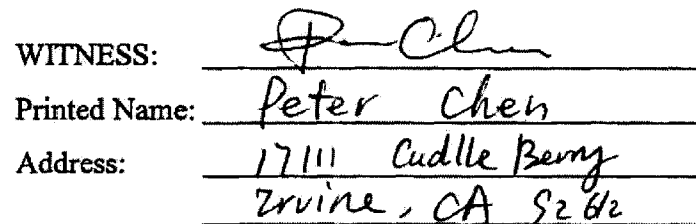 WITNESS:
Printed Name: Peter Chen
Address: 17111 Cudlle Berry
Irvine, CA 92612